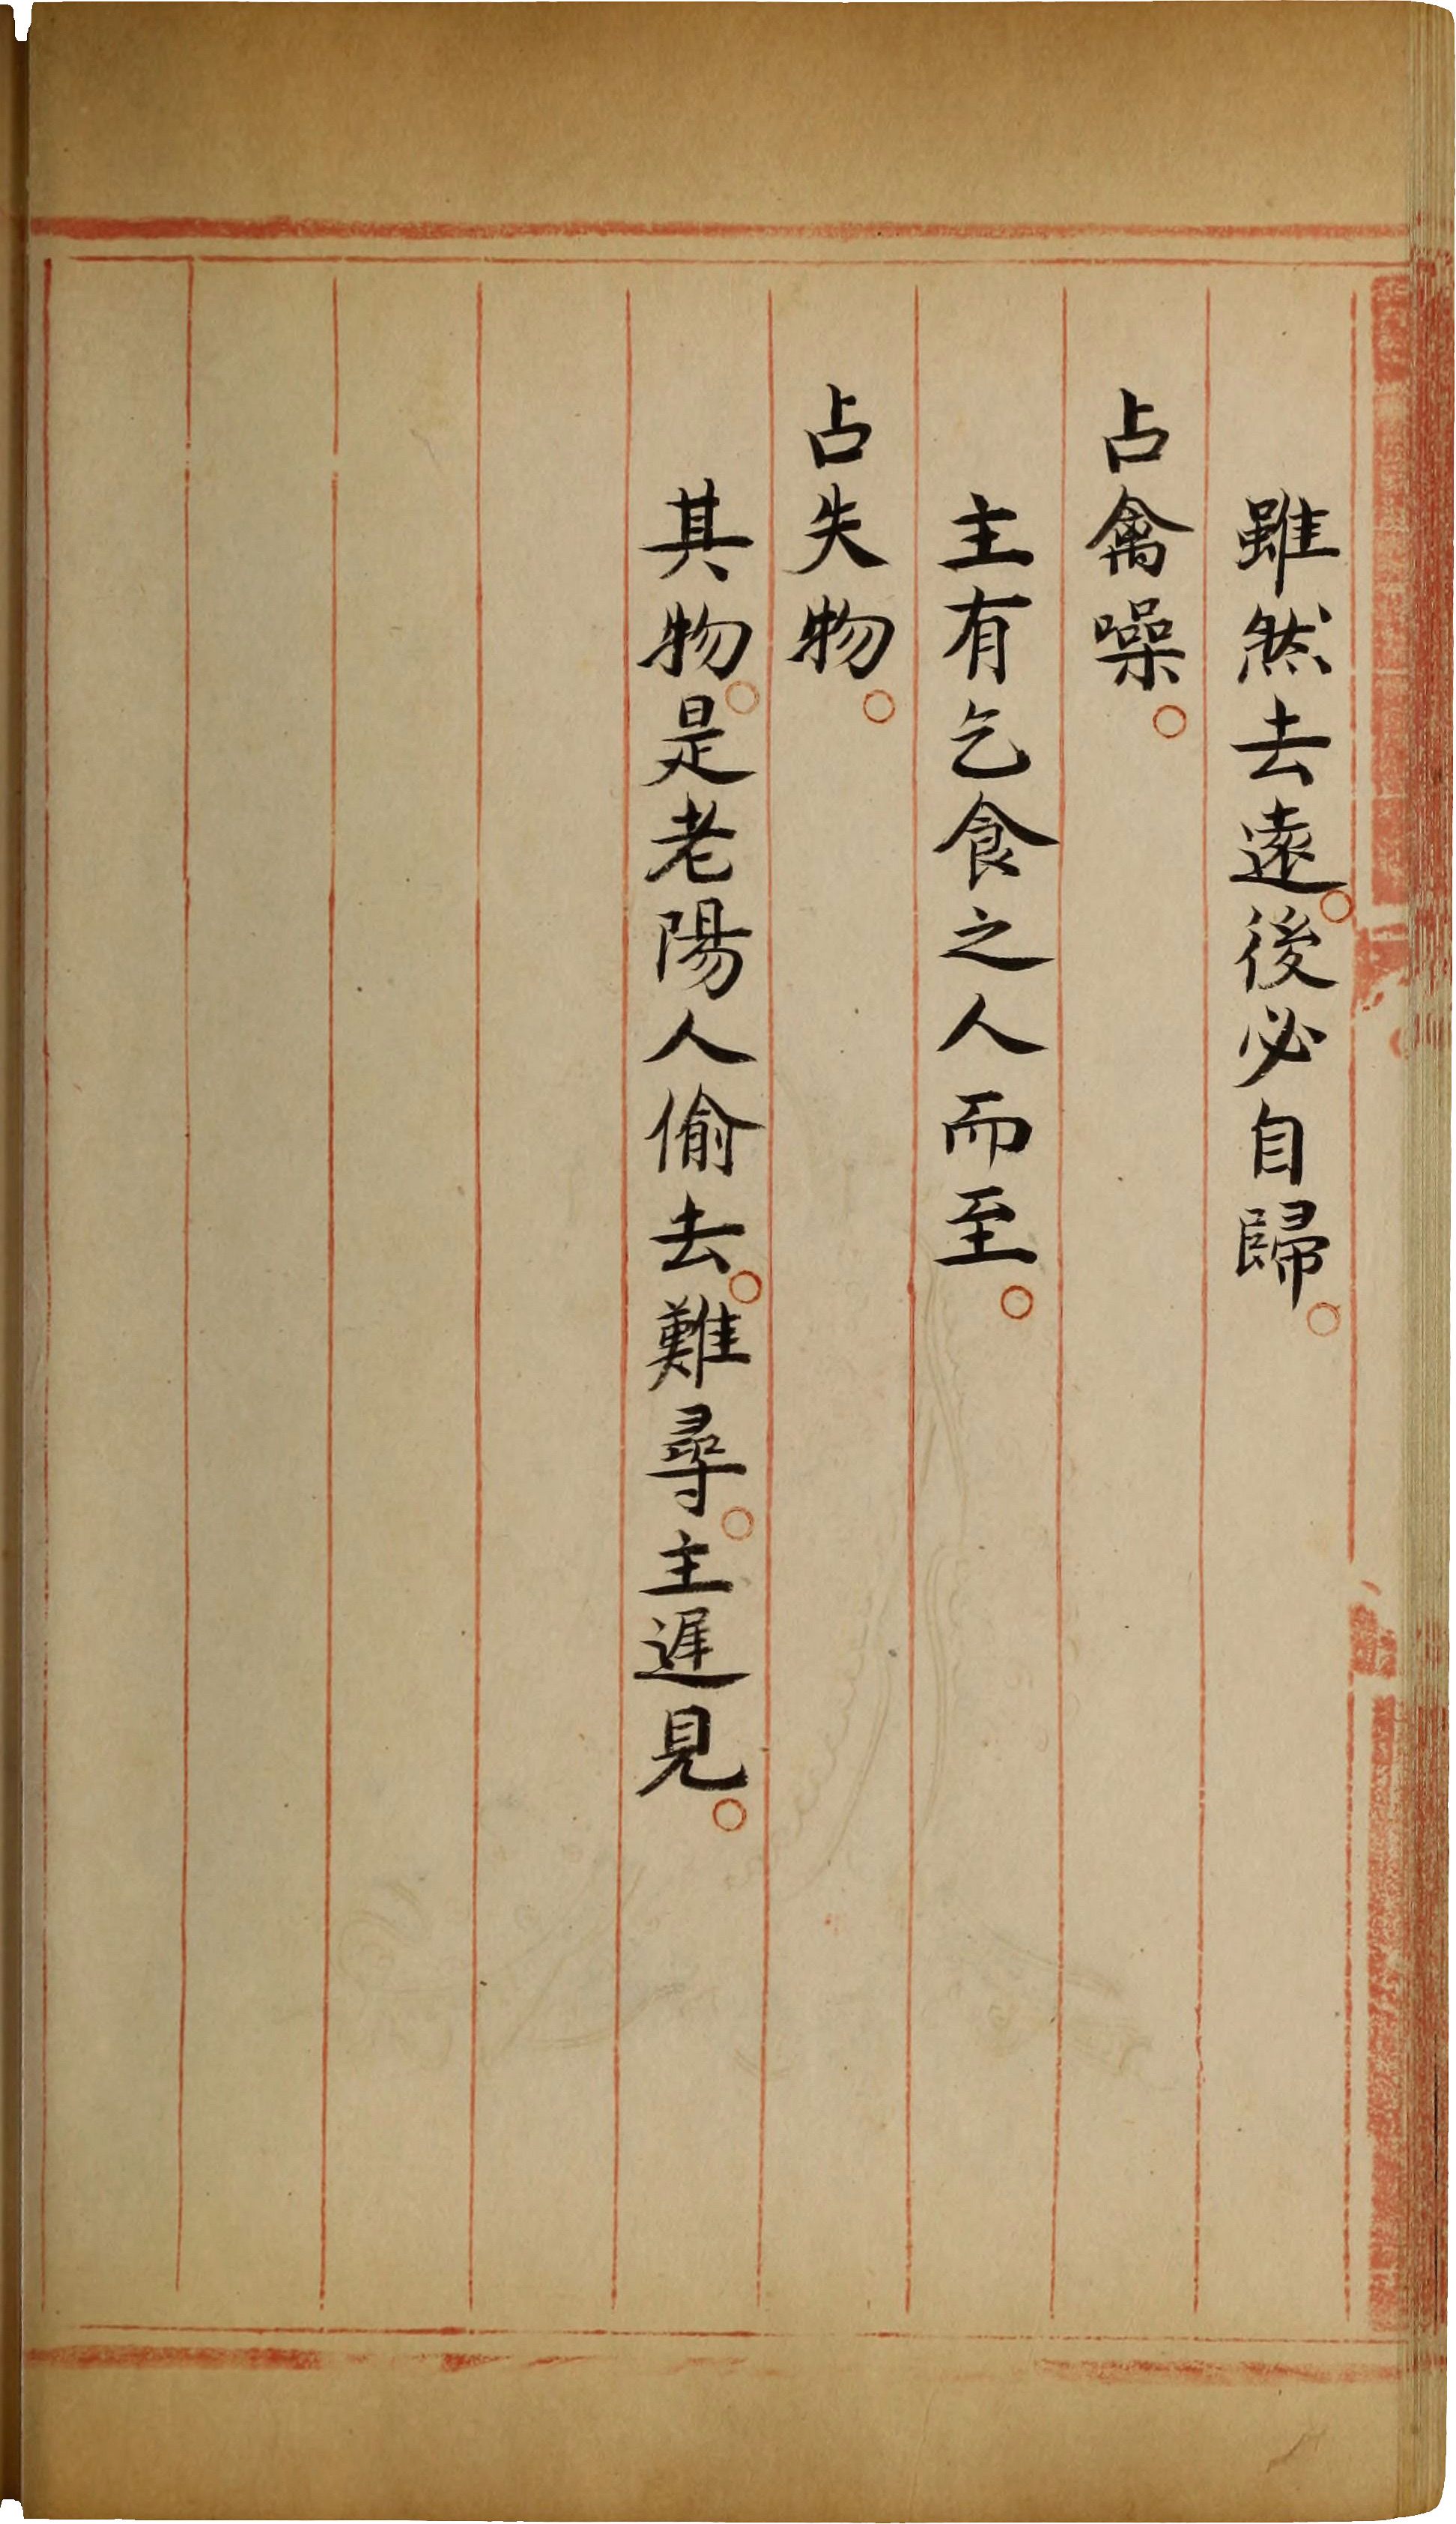 雖然去遠。後必自歸。
占禽噪。
主有乞食之人而至。
占失物。
其物。是老陽人偷去。難尋。主遲見。